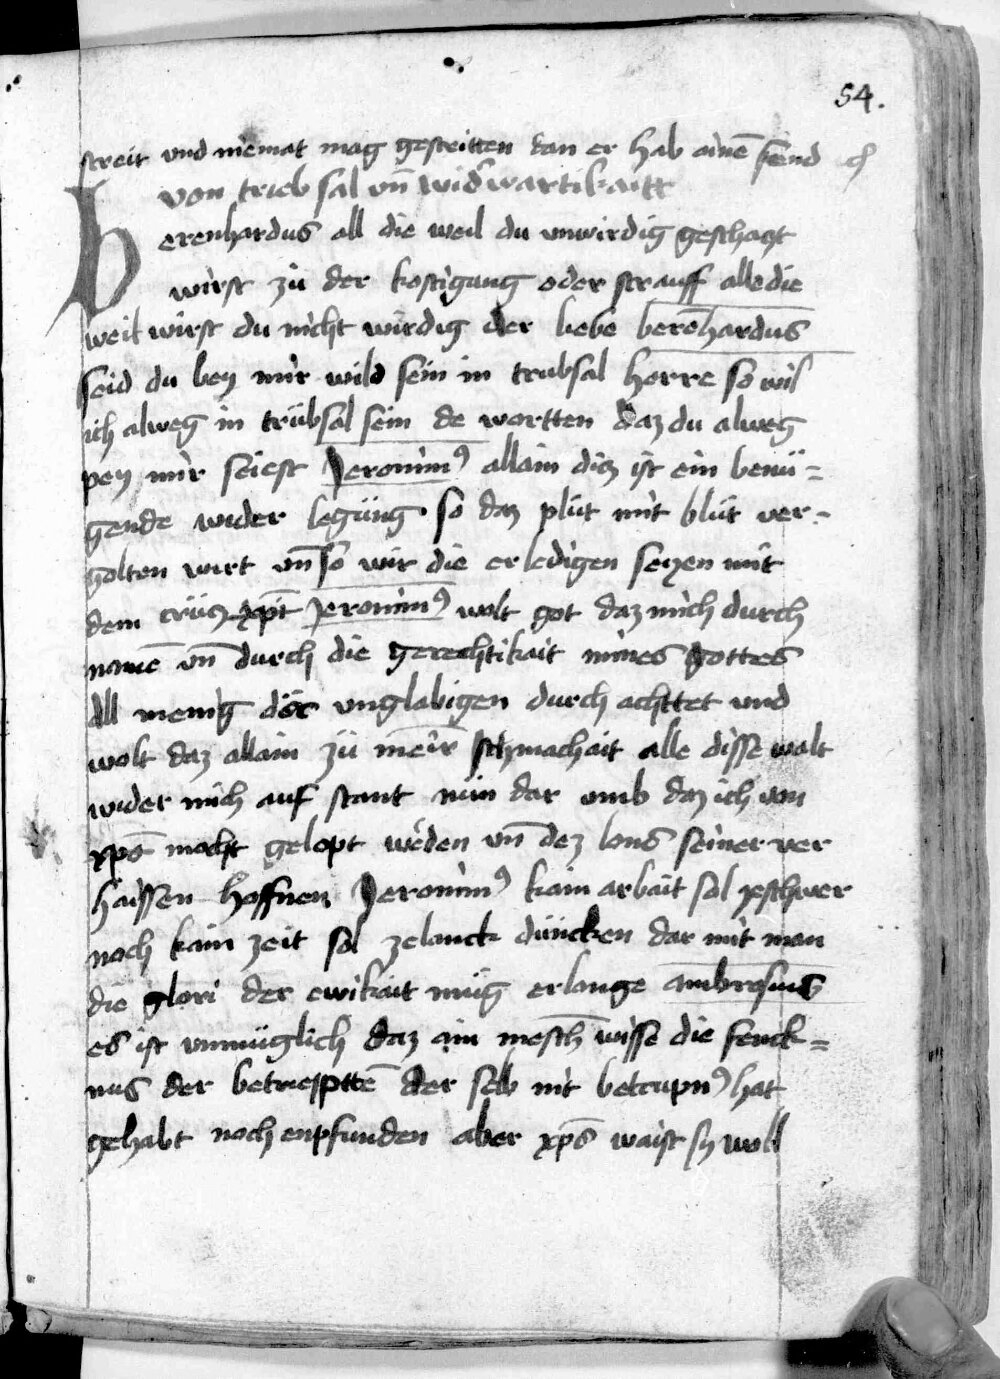 54.
streit und niemat mag gestritten dan er hab ainē feind
von trieb sal vn̄ widʼwartikaitt
Berenhardus all die weil du unwirdig geschaczt
wirst zü der kestigung oder strauff alle die
weil wirst du nicht wirdig der liebe berēhardus
seid du bey mir wild sein in trubsal herre so wil
ich alweg in trübsal sein de wortten daz du alweg
pey mir seiest Jeronimꝰ allain diz ist ein benü=
gende wider legüng so daz plüt mit blüt ver=
golten wirt vn̄ so wir die erledigen seyen mit
dem crücz xp̄i Jeronimꝰ wolt got daz mich durch
namē vn̄ durch die gerechtikait mines gottes
all menig der unglabigen durch achttet und
wolt daz allain zü meir schmachait alle disse welt
wider mich auf stant nün dar umb daz ich von
xp̄o mocht gelopt weden vn̄ dez lons seiner ver
haissen hoffnen Jeronimꝰ kain arbait sol ze schwer
noch kain zeit sol ze lanck düncken dar mit man
die glori der ewikait müg erlange ambrosius
es ist unmüglich daz ain mesch̄ wisse die senck=
nus der betriepttē der selb nit betrupnꝰ hat
gehabt noch enpfunden aber xp̄s waist sy woll